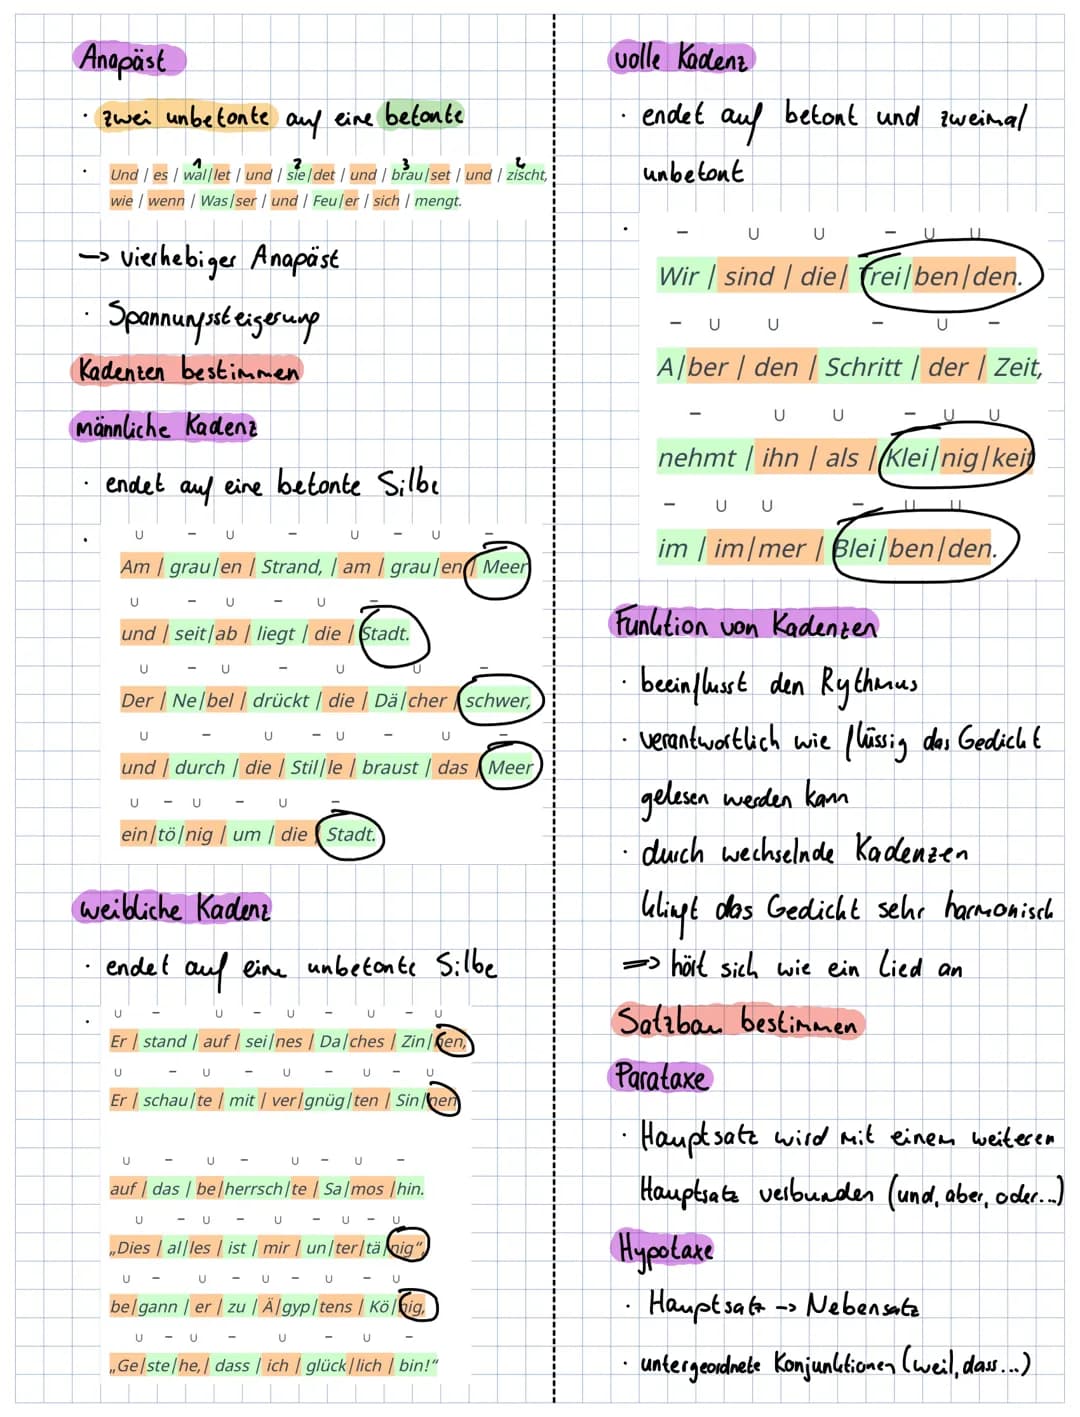 Anapäst
· zwei unbetonte auf eine betonte
1 2 3 4
· Und / es / wal/let / und / sie/det / und / brau/set / und / zischt,
wie / wenn / Was/ser / und / Feu/er / sich / mengt.
—> vierhebiger Anapäst
· Spannungssteigerung
Kadenzen bestimmen
männliche Kadenz
· endet auf eine betonte Silbe
∪ – ∪ – ∪ – ∪ –
· Am / grau/en / Strand, / am / grau/en / Meer
∪ – ∪ – ∪ –
und / seit/ab / liegt / die / Stadt.
∪ – ∪ – ∪ ∪ –
Der / Ne/bel / drückt / die / Dä/cher / schwer,
∪ – ∪ – ∪ – ∪ –
und / durch / die / Stil/le / braust / das / Meer
∪ – ∪ – ∪ –
ein/tö/nig / um / die / Stadt.
weibliche Kadenz
· endet auf eine unbetonte Silbe
∪ – ∪ – ∪ – ∪ – ∪
· Er / stand / auf / sei/nes / Da/ches / Zin/nen,
∪ – ∪ – ∪ – ∪ – ∪
Er / schau/te / mit / ver/gnüg/ten / Sin/nen
∪ – ∪ – ∪ – ∪ –
auf / das / be/herrsch/te / Sa/mos /hin.
∪ – ∪ – ∪ – ∪ – ∪
„Dies / al/les / ist / mir / un/ter/tä/nig“,
∪ – ∪ – ∪ – ∪ – ∪
be/gann / er / zu / Ä/gyp/tens / Kö/nig,
∪ – ∪ – ∪ – ∪ –
„Ge/ste/he,/ dass / ich / glück/lich / bin!“
volle Kadenz
· endet auf betont und zweimal
unbetont
– ∪ ∪ – ∪ ∪
· Wir / sind / die/ Trei/ben/den.
– ∪ ∪ – ∪ –
A/ber / den / Schritt / der / Zeit,
– ∪ ∪ – ∪ ∪
nehmt / ihn / als / Klei/nig/keit
– ∪ ∪ – ∪ ∪
im / im/mer / Blei/ben/den.
Funktion von Kadenzen
· beeinflusst den Rythmus
· verantwortlich wie flüssig das Gedicht
gelesen werden kann
· durch wechselnde Kadenzen
klingt das Gedicht sehr harmonisch
=> hört sich wie ein Lied an
Satzbau bestimmen
Parataxe
· Hauptsatz wird mit einem weiteren
Hauptsatz verbunden (und, aber, oder...)
Hypotaxe
· Hauptsatz -> Nebensatz
· untergeordnete Konjunktionen (weil, dass...)